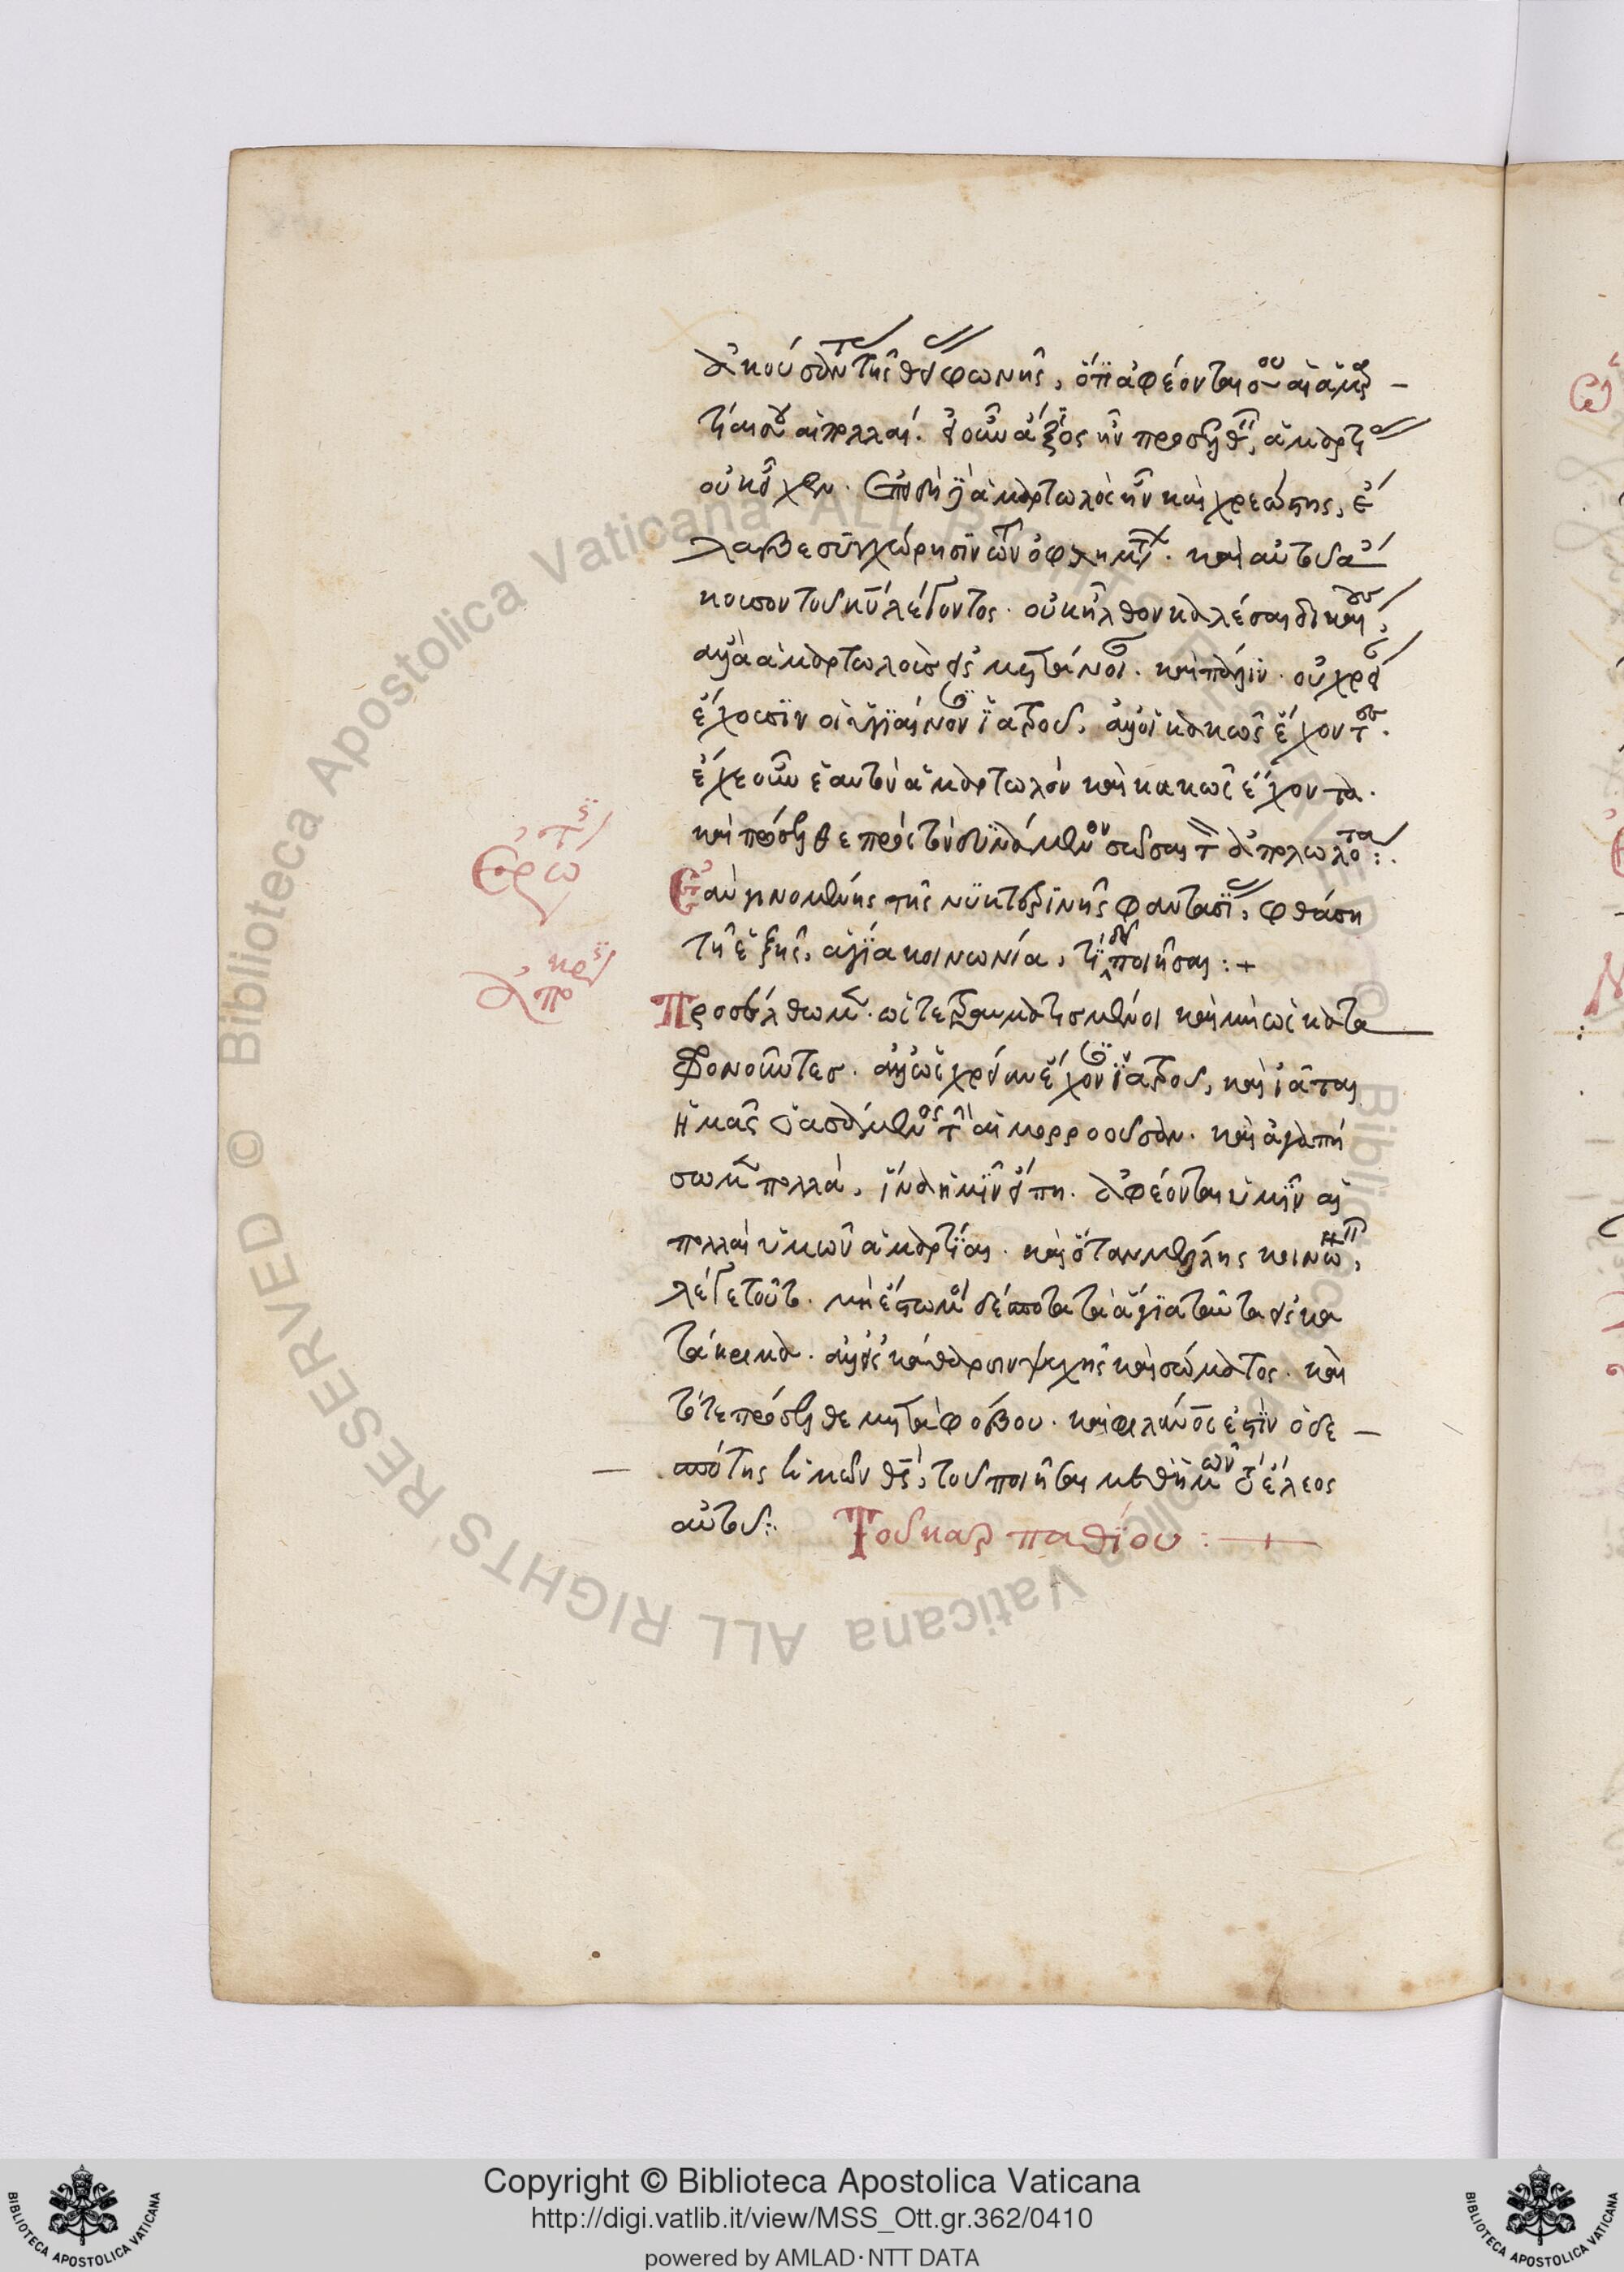 ἀκοῦσαι τῆς θείας φωνῆς, ὅτι ἀφέονταί σου αἱ ἁμαρ
τίαι σου αἱ πολλαί. εἰ οὖν ἄξιος ἦν προσελθεῖν, ἁμαρτίας
οὐκ εἶχεν. Ἐπειδὴ γὰρ ἁμαρτωλὸς ἦν καὶ χρεώστης, ἔ
λαβε συγχώρησιν τῶν ὀφλημάτων. καὶ αὐτοῦ ἄ
κουσον τοῦ κυ λέγοντος. οὐκ ἦλθον καλέσαι δικαίους,
ἀλλὰ ἁμαρτωλοὺς εἰς μετάνοιαν. καὶ πάλιν. οὐ χρείαν
ἔχουσιν οἱ ὑγιαίνοντες ἰατροῦ, ἀλλ' οἱ κακῶς ἔχοντες.
ἔχε οὖν ἑαυτὸν ἁμαρτωλὸν καὶ κακῶς ἔχοντα.
καὶ πρόσελθε πρὸς τὸν δυνάμενον σῶσαι τὸ ἀπολωλός:
Ἐρώτησις
Ἐὰν γινομένης τῆς νυκτερινῆς φαντασίας, φθάση
τῇ ἑξῆς, ἁγία κοινωνία, τί δεῖ ποιῆσαι:+
Ἀπόκρισις
Προσέλθωμεν. ὡς τετραυματισμένοι καὶ μὴ ὡς κατα
φρονοῦντες. ἀλλ' ὡς χρείαν ἔχοντες ἰατροῦ, καὶ ἰᾶται
ἡμᾶς ὁ ἰασάμενος τὴν αἱμορροοῦσαν. καὶ ἀγαπή
σωμεν πολλά, ἵνα ἡμῖν εἴπῃ. ἀφέονται ὑμῖν αἱ
πολλαὶ ὑμῶν ἁμαρτίαι. καὶ ὅταν μέλλῃς κοινων,
λέγε τοῦτο. μὴ ἔστω μοι δέσποτα τὰ ἅγια ταῦτα εἰς κα
τάκριμα. ἀλλ' εἰς κάθαρσιν ψυχῆς καὶ σώματος. καὶ
τότε πρόσελθε μετὰ φόβου. καὶ φιλάνος ἐστὶν ὁ δε
σπότης ἡμῶν θς, τοῦ ποιῆσαι μεθ' ἡμῶν τὸ ἔλεος
αὐτοῦ:
Τοῦ καρπαθίου:+
Copyright © Biblioteca Apostolica Vaticana
http://digi.vatlib.it/view/MSS_Ott.gr.362/0410
powered by AMLAD·NTT DATA
BIBLIOTECA APOSTOLICA VATICANA
BIBLIOTECA APOSTOLICA VATICANA
© Biblioteca Apostolica Vaticana ALL RIGHTS RESERVED
© Biblioteca Apostolica Vaticana ALL RIGHTS RESERVED